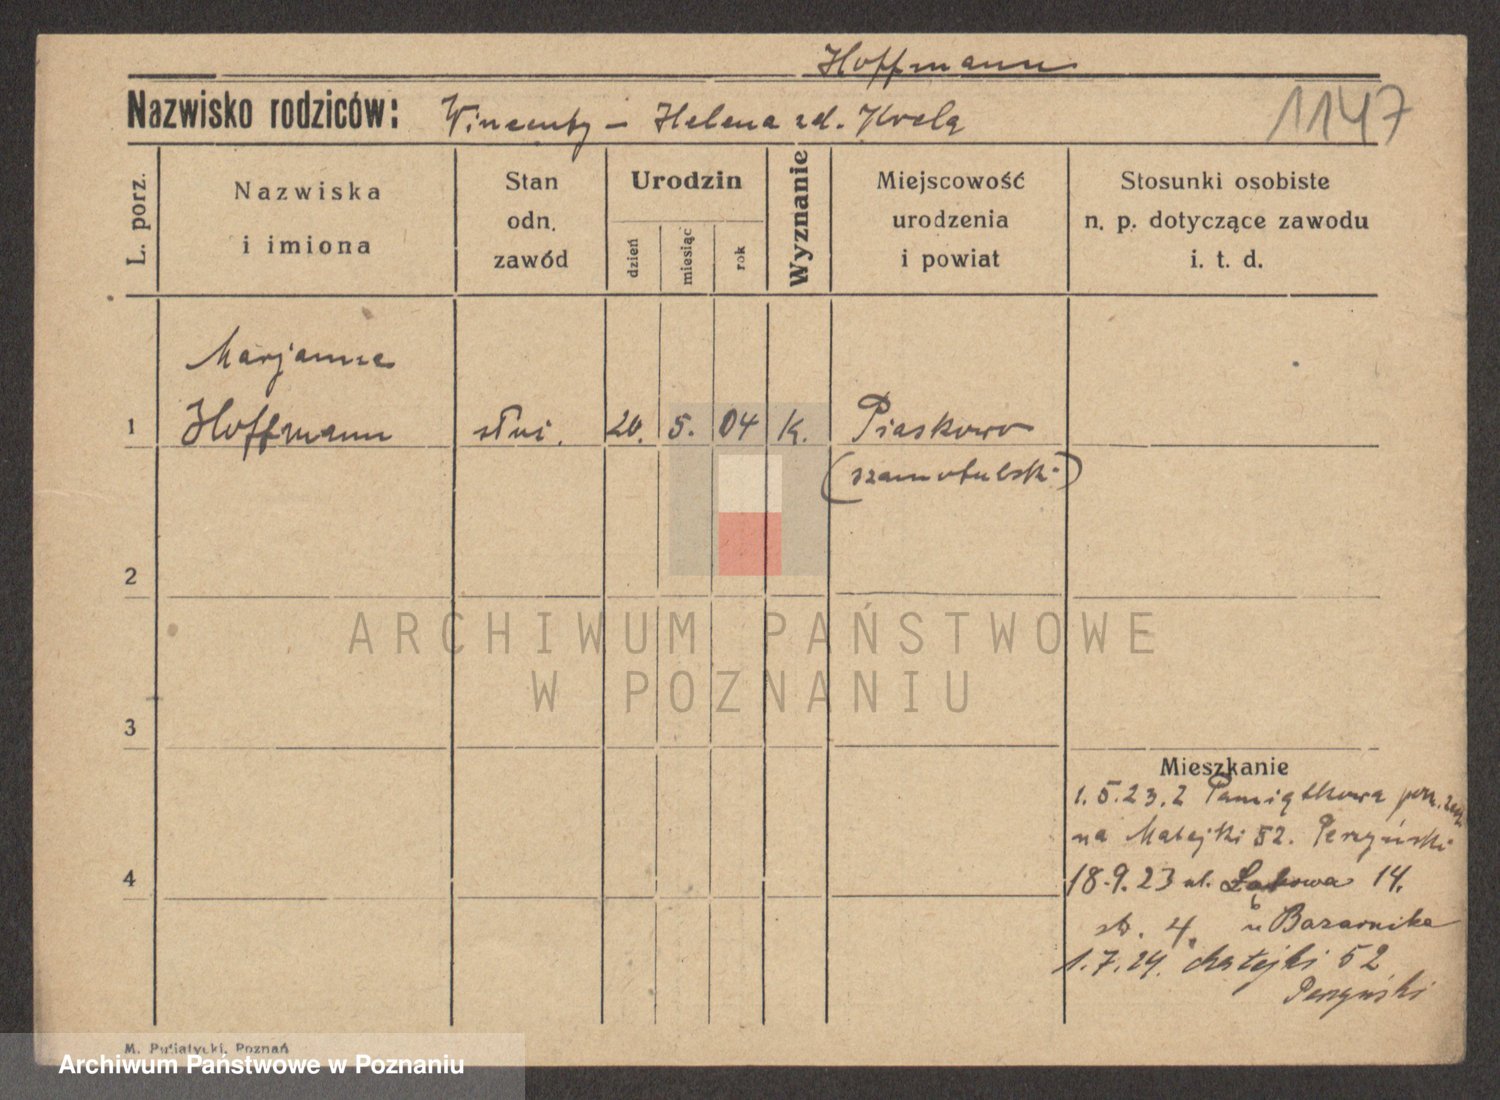 Hoffmann
Nazwisko rodziców: Wincenty – Helena zd. Krela
1147
L. porz.
Nazwiska
i imiona
Stan
odn.
zawód
Urodzin
dzień
miesiąc
rok
Wyznanie
Miejscowość
urodzenia
i powiat
Stosunki osobiste
n. p. dotyczące zawodu
i. t. d.
Marjanna
1 Hoffmann służ. 20. 5. 04 K. Piaskowo
(szamotulski)
2
3
4
ARCHIWUM PAŃSTWOWE
W POZNANIU
Mieszkanie
1.5.23. z Pamiątkowa pow.
na Matejki 52. Perzyński
18.9.23 ul. Łąkowa 14.
str. 4. u Bazarnika
1.7.24. Matejki 52
Perzyński
M. Putiatycki, Poznań
Archiwum Państwowe w Poznaniu